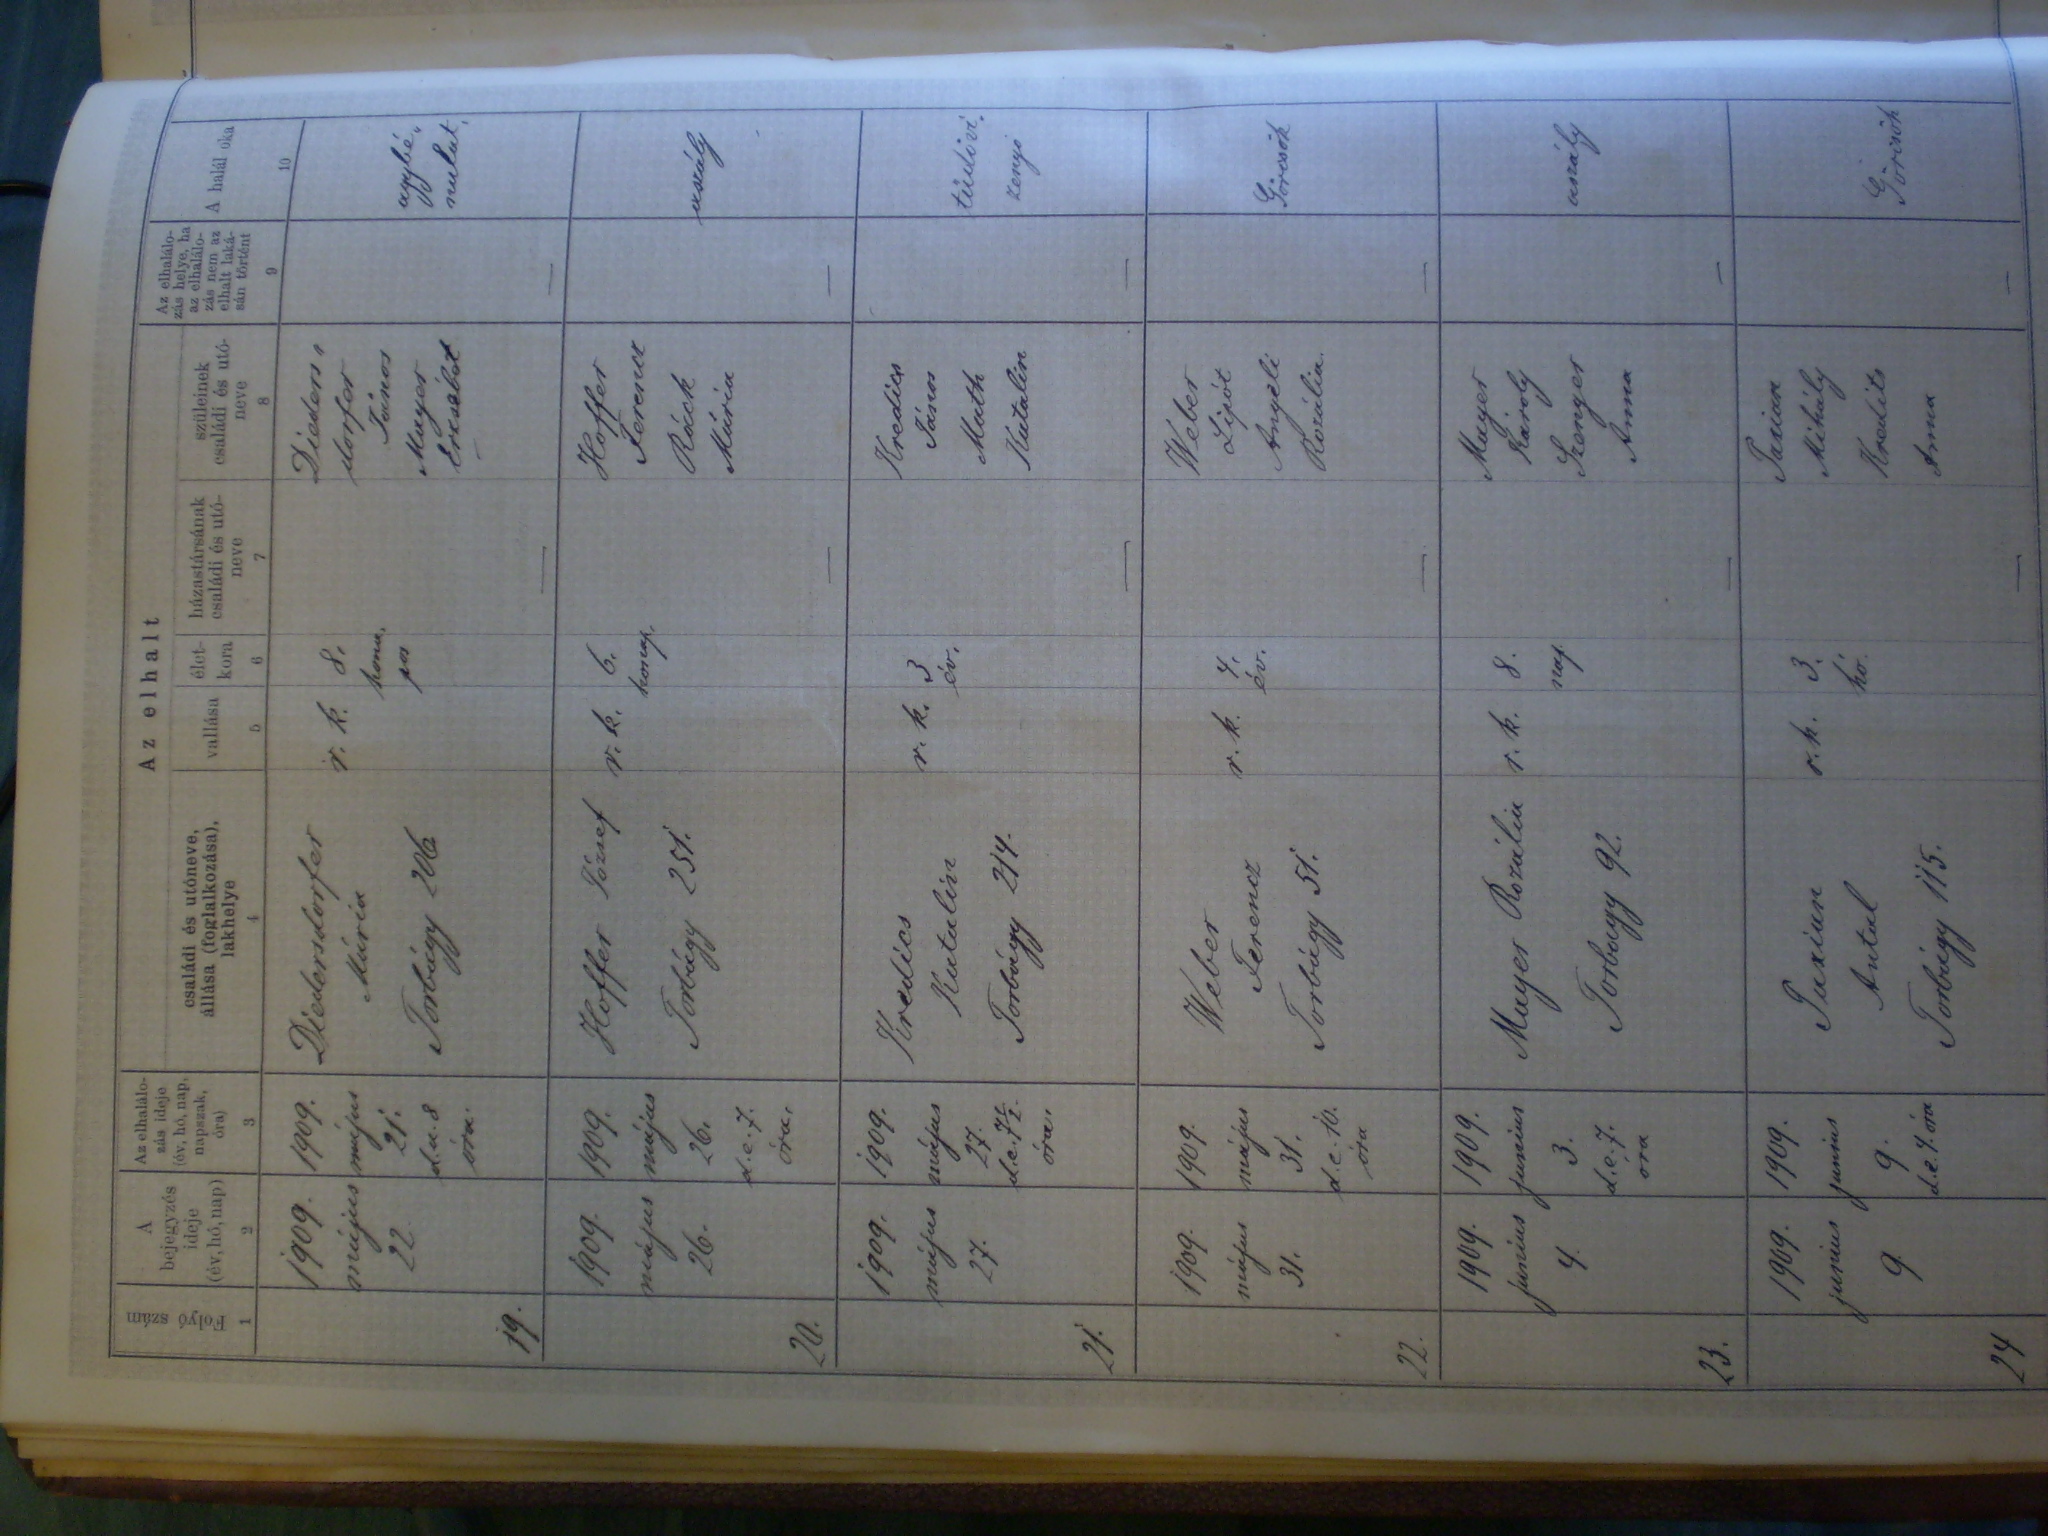 Az elhalt
Folyó szám
1
A bejegyzés ideje (év, hó, nap)
2
Az elhalálo-
zás ideje
(év, hó, nap,
napszak,
óra)
3
családi és utóneve,
állása (foglalkozása),
lakhelye
4
vallása
5
élet-
kora
6
házastársának
családi és utó-
neve
7
szüleinek
családi és utó-
neve
8
Az elhalálo-
zás helye, ha
az elhalálo-
zás nem az
elhalt laká-
sán történt
9
A halál oka
10
19.
1909.
május
22.
1909.
május
21.
d.u. 8
óra.
Diedersdorfer
Mária
Torbágy 206
r. k.
8.
hona,
pos
—
Dieders,
dorfer
János
Mayer
Erzsébet
—
agybé,
nulat,
20.
1909.
május
26.
1909.
május
26.
d.e. 7.
óra.
Hoffer József
Torbágy 251.
r. k.
6.
honap.
—
Hoffer
Ferencz
Róck
Mária
—
aszály
21.
1909.
május
27.
1909.
május
27.
d.e. 7½
óra.
Kredics
Katalin
Torbágy 214.
r. k.
3
év.
—
Kredics
János
Muth
Katalin
—
tüdőví.
zenyő
22.
1909.
május
31.
1909.
május
31.
d.e. 10.
óra
Weber
Ferencz
Torbágy 51.
r. k.
4.
év.
—
Weber
Lipót
Angeli
Rozália.
—
Görcsök
23.
1909.
junius
4.
1909.
junius
3.
d.e. 7.
óra
Mayer Rozália
Torbagy 92.
r. k.
8.
nap.
—
Mayer
Károly
Szenger
Anna
—
aszály
24
1909.
junius
9.
1909.
junius
9.
d.e. 4 óra
Paxian
Antal
Torbágy 115.
r. k.
3.
hó.
—
Paxian
Mihály
Kredits
Anna
—
Görcsök